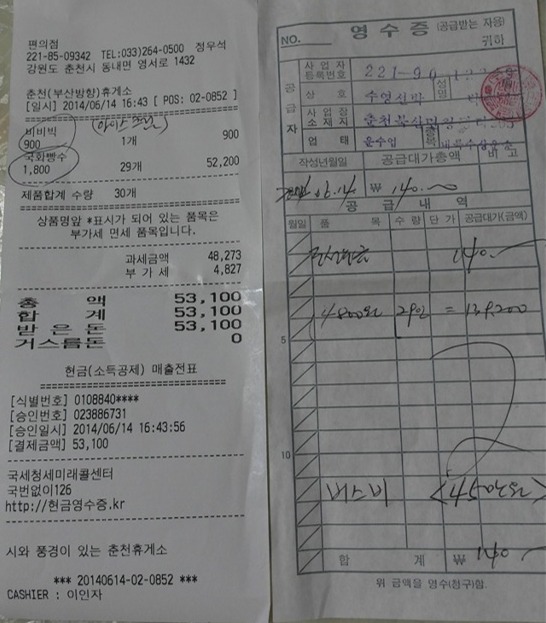 편의점
221-85-09342 TEL:033)264-0500 정우석
강원도 춘천시 동내면 영서로 1432
춘천(부산방향)휴게소
[일시] 2014/06/14 16:43 [ POS: 02-0852 ]
비비빅
900 1개 900
국화빵수
1,800 29개 52,200
제품합계 수량 30개
상품명앞 *표시가 되어 있는 품목은
부가세 면세 품목입니다.
과세금액 48,273
부 가 세 4,827
총 액 53,100
합 계 53,100
받 은 돈 53,100
거스름돈 0
현금(소득공제) 매출전표
[식별번호] 0108840****
[승인번호] 023886731
[승인일시] 2014/06/14 16:43:56
[결제금액] 53,100
국세청세미래콜센터
국번없이126
http://현금영수증.kr
시와 풍경이 있는 춘천휴게소
*** 20140614-02-0852 ***
CASHIER : 이인자
NO. 영 수 증 (공급받는 자용)
귀하
공급자
사 업 자
등록번호 221-90
상 호 성명
사 업 장
소 재 지
업 태 운수업 종목
작성년월일 공급대가총액 비 고
06.14 ₩ 140.-
공 급 내 역
월일 품 목 수 량 단 가 공급대가(금액)
140.-
4800원 29인 = 139,200
5
10
버스비 <450만원>
합 계 ₩ 140-
위 금액을 영수(청구)함.